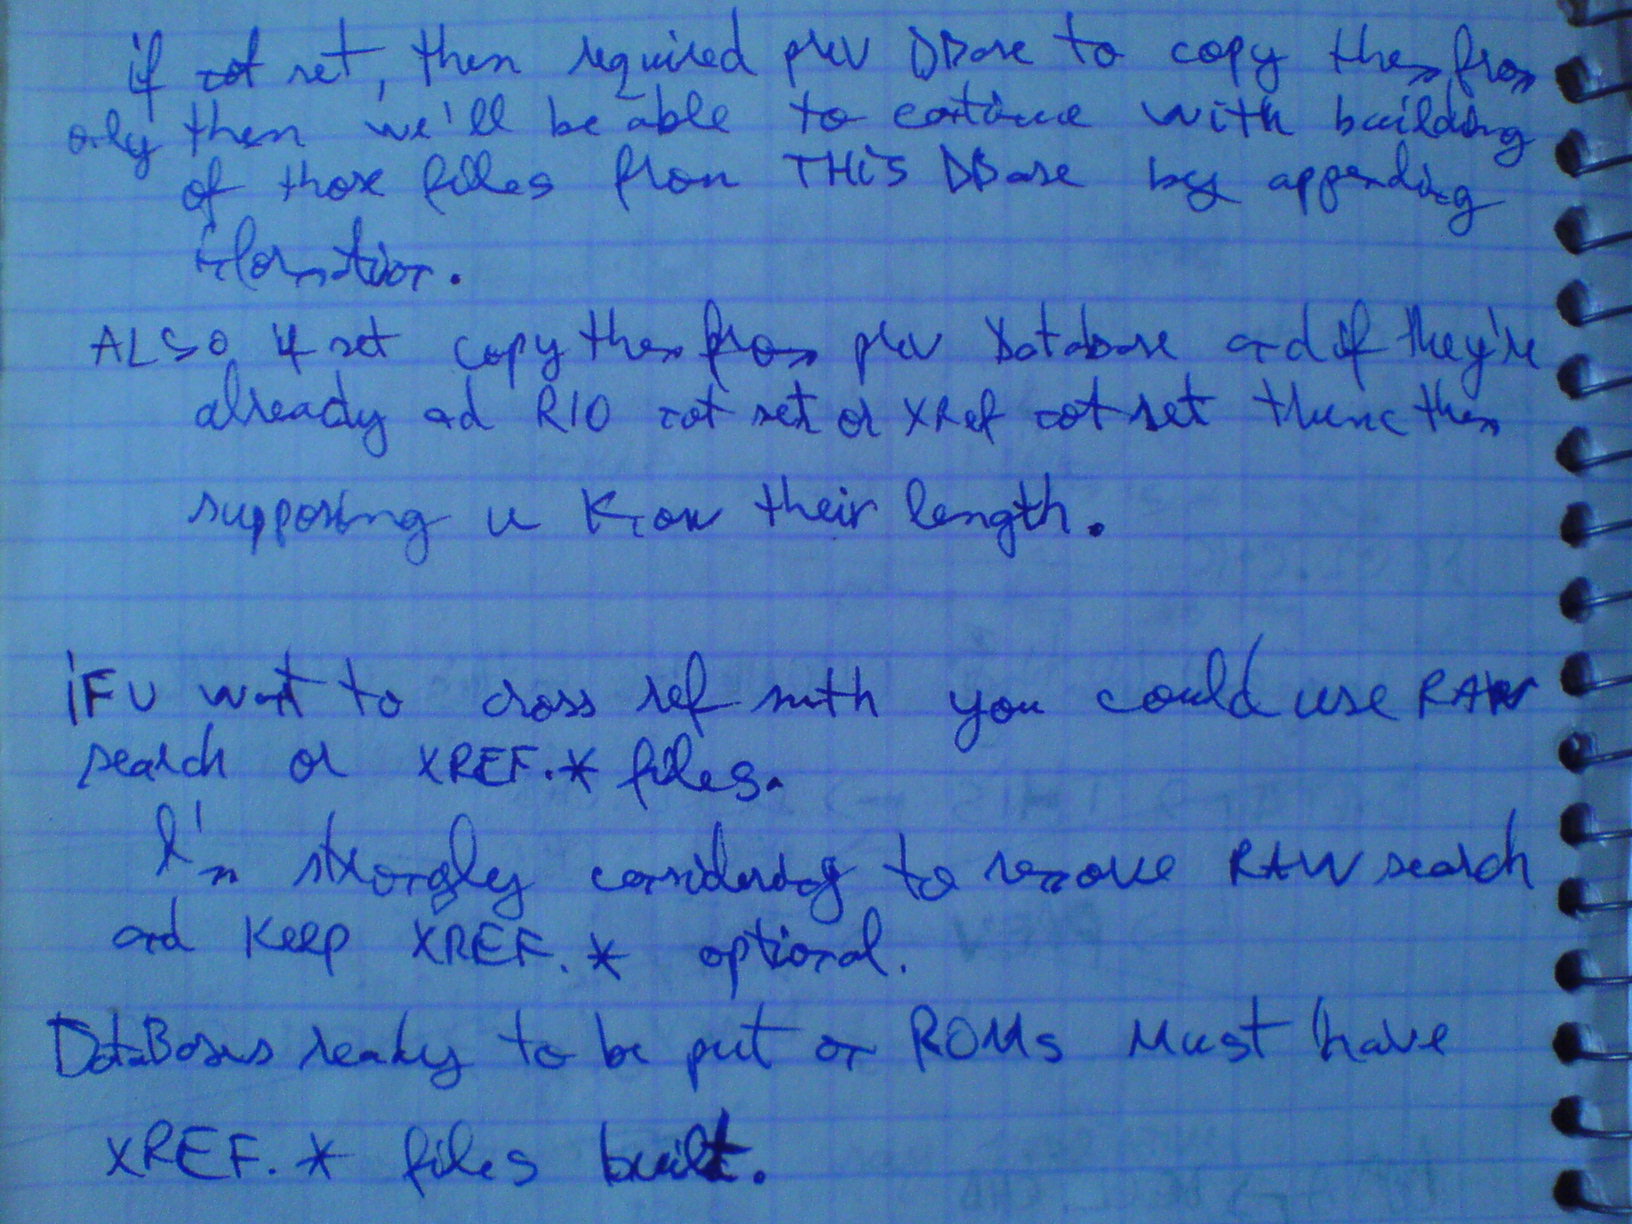 if not set, then required prev DBase to copy them from
only then we'll be able to continue with building
of those files from THiS DBase by appending
information.
ALSO if set copy them from prev Database and if they're
already and R10 not set or XRef not set then
supposing u Know their length.
iF U want to cross ref smth you could use RAW
search or XREF.* files.
I'm strongly considering to remove RAW search
and Keep XREF.* optional.
DataBases ready to be put on ROMs Must have
XREF.* files built.